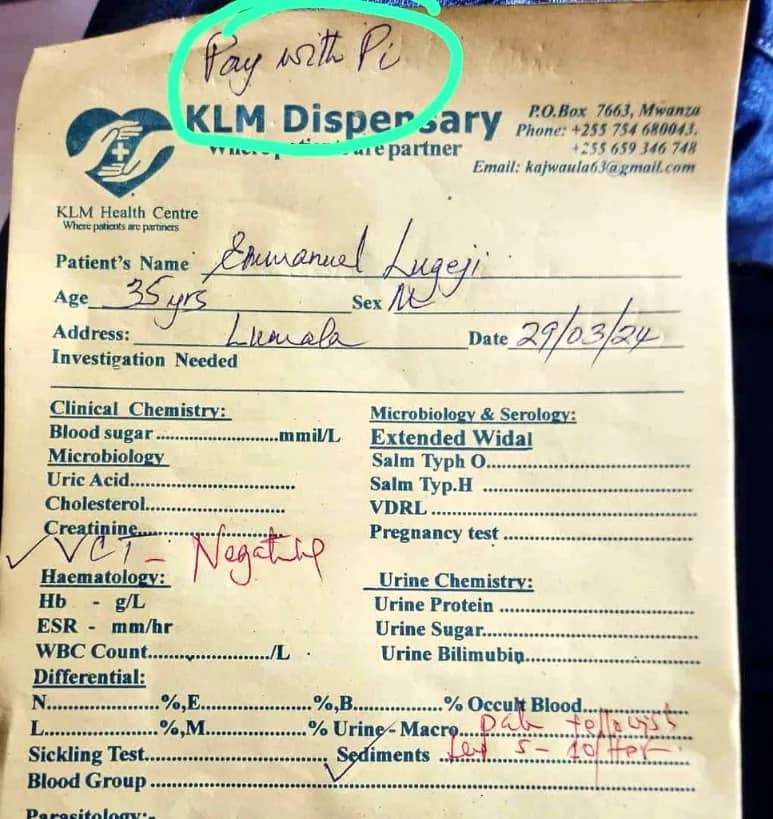 Pay with Pi
KLM Dispensary
Where patients are partner
P.O.Box 7663, Mwanza
Phone: +255 754 680043.
+255 659 346 748
Email: kajwaula63@gmail.com
KLM Health Centre
Where patients are partiners
Patient's Name Emmanuel Lugeji
Age 35yrs Sex M
Address: Lumala Date 29/03/24
Investigation Needed
Clinical Chemistry:
Blood sugar..................mmil/L
Microbiology
Uric Acid........................
Cholesterol.....................
Creatinine......................
✓ VCT - Negative
Haematology:
Hb - g/L
ESR - mm/hr
WBC Count..................../L
Microbiology & Serology:
Extended Widal
Salm Typh O..............................
Salm Typ.H ..............................
VDRL ......................................
Pregnancy test ........................
Urine Chemistry:
Urine Protein ............................
Urine Sugar..............................
Urine Bilimubin.........................
Differential:
N.................%,E.................%,B.................% Occult Blood..............
L.................%,M.................% Urine - Macro
Sickling Test........................... Sediments 5-10/
✓
Blood Group ........................................................................
Parasitology:-